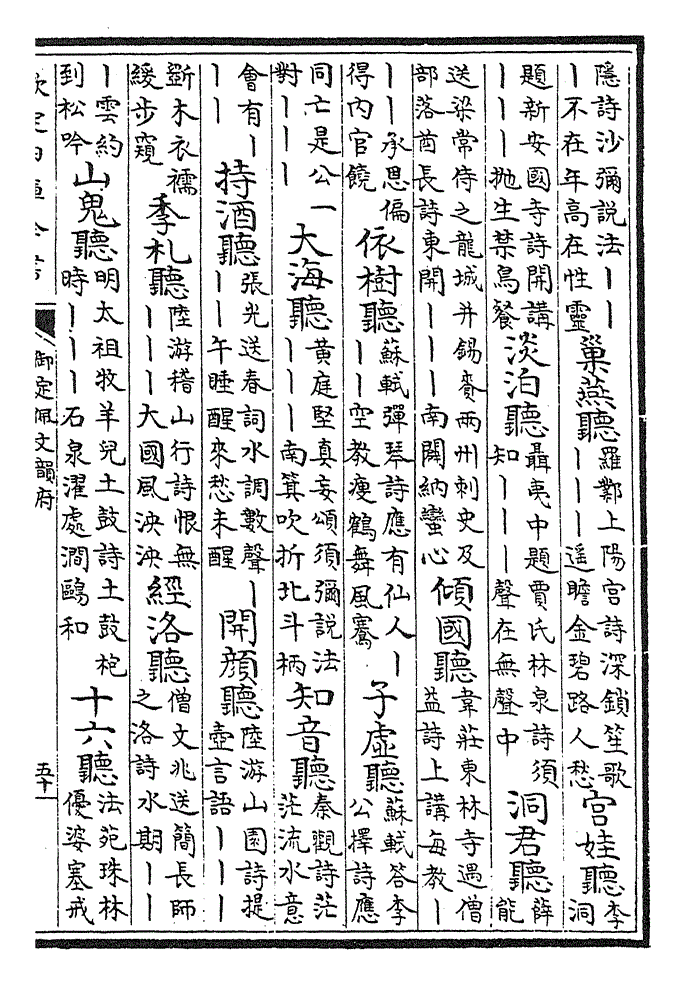 隱詩沙彌說法丨丨丨不在年高在性靈 巢燕聽 羅鄴上陽宮詩深鎖笙歌丨丨丨遥瞻金碧路人愁 宮娃聽 李洞
題新安國寺詩開講丨丨丨抛生禁鳥餐 淡泊聽 聶夷中題賈氏林泉詩須知丨丨丨聲在無聲中 洞君聽 薛能
送梁常侍之龍城并錫賚兩州刺史及部落酋長詩東開丨丨丨南關納蠻心 傾國聽 韋莊東林寺遇僧益詩上講每教丨
丨丨承恩偏得内官饒 依樹聽 蘇軾彈琴詩應有仙人丨丨丨空教瘦鶴舞風騫 子虛聽 蘇軾答李公擇詩應
同亡是公一對丨丨丨 大海聽 黃庭堅真妄頌須彌說法丨丨丨南箕吹折北斗柄 知音聽 秦觀詩茫茫流水意
會有丨丨丨 持酒聽 張光送春詞水調數聲丨丨丨午睡醒來愁未醒 開顏聽 陸游山園詩提壺言語丨丨丨
斵木衣襦緩步窺 季札聽 陸游稽山行詩恨無丨丨丨大國風泱泱 經洛聽 僧文兆送簡長師之洛詩水期丨丨
丨雲約到松吟 山鬼聽 明太祖牧羊兒土鼓詩土鼓枹時丨丨丨石泉濯處澗鷗和 十六聽 法苑珠林優婆塞戒
欽定四庫全書
御定佩文韻府
五十